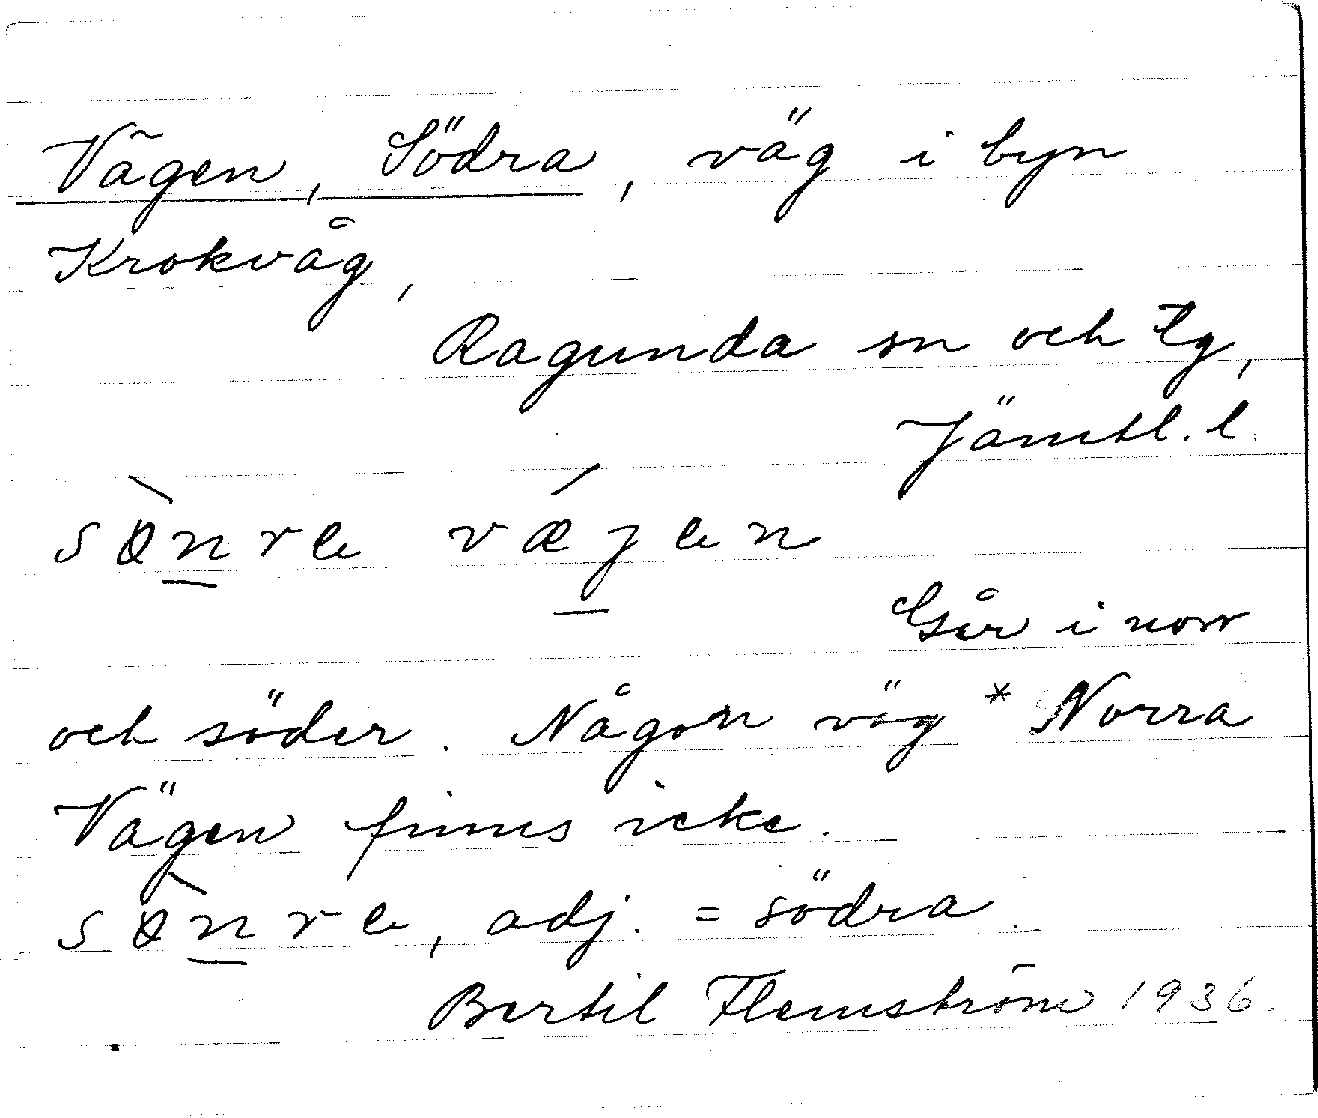 Vägen, Södra, väg i byn
Krokvåg,
Ragunda sn och tg,
Jämtl. l.
sø̀n̲re vǽj̲en
Går i norr
och söder. Någon väg * Norra
Vägen finns icke.
sø̀n̲re, adj. = södra.
Bertil Flemström 1936.